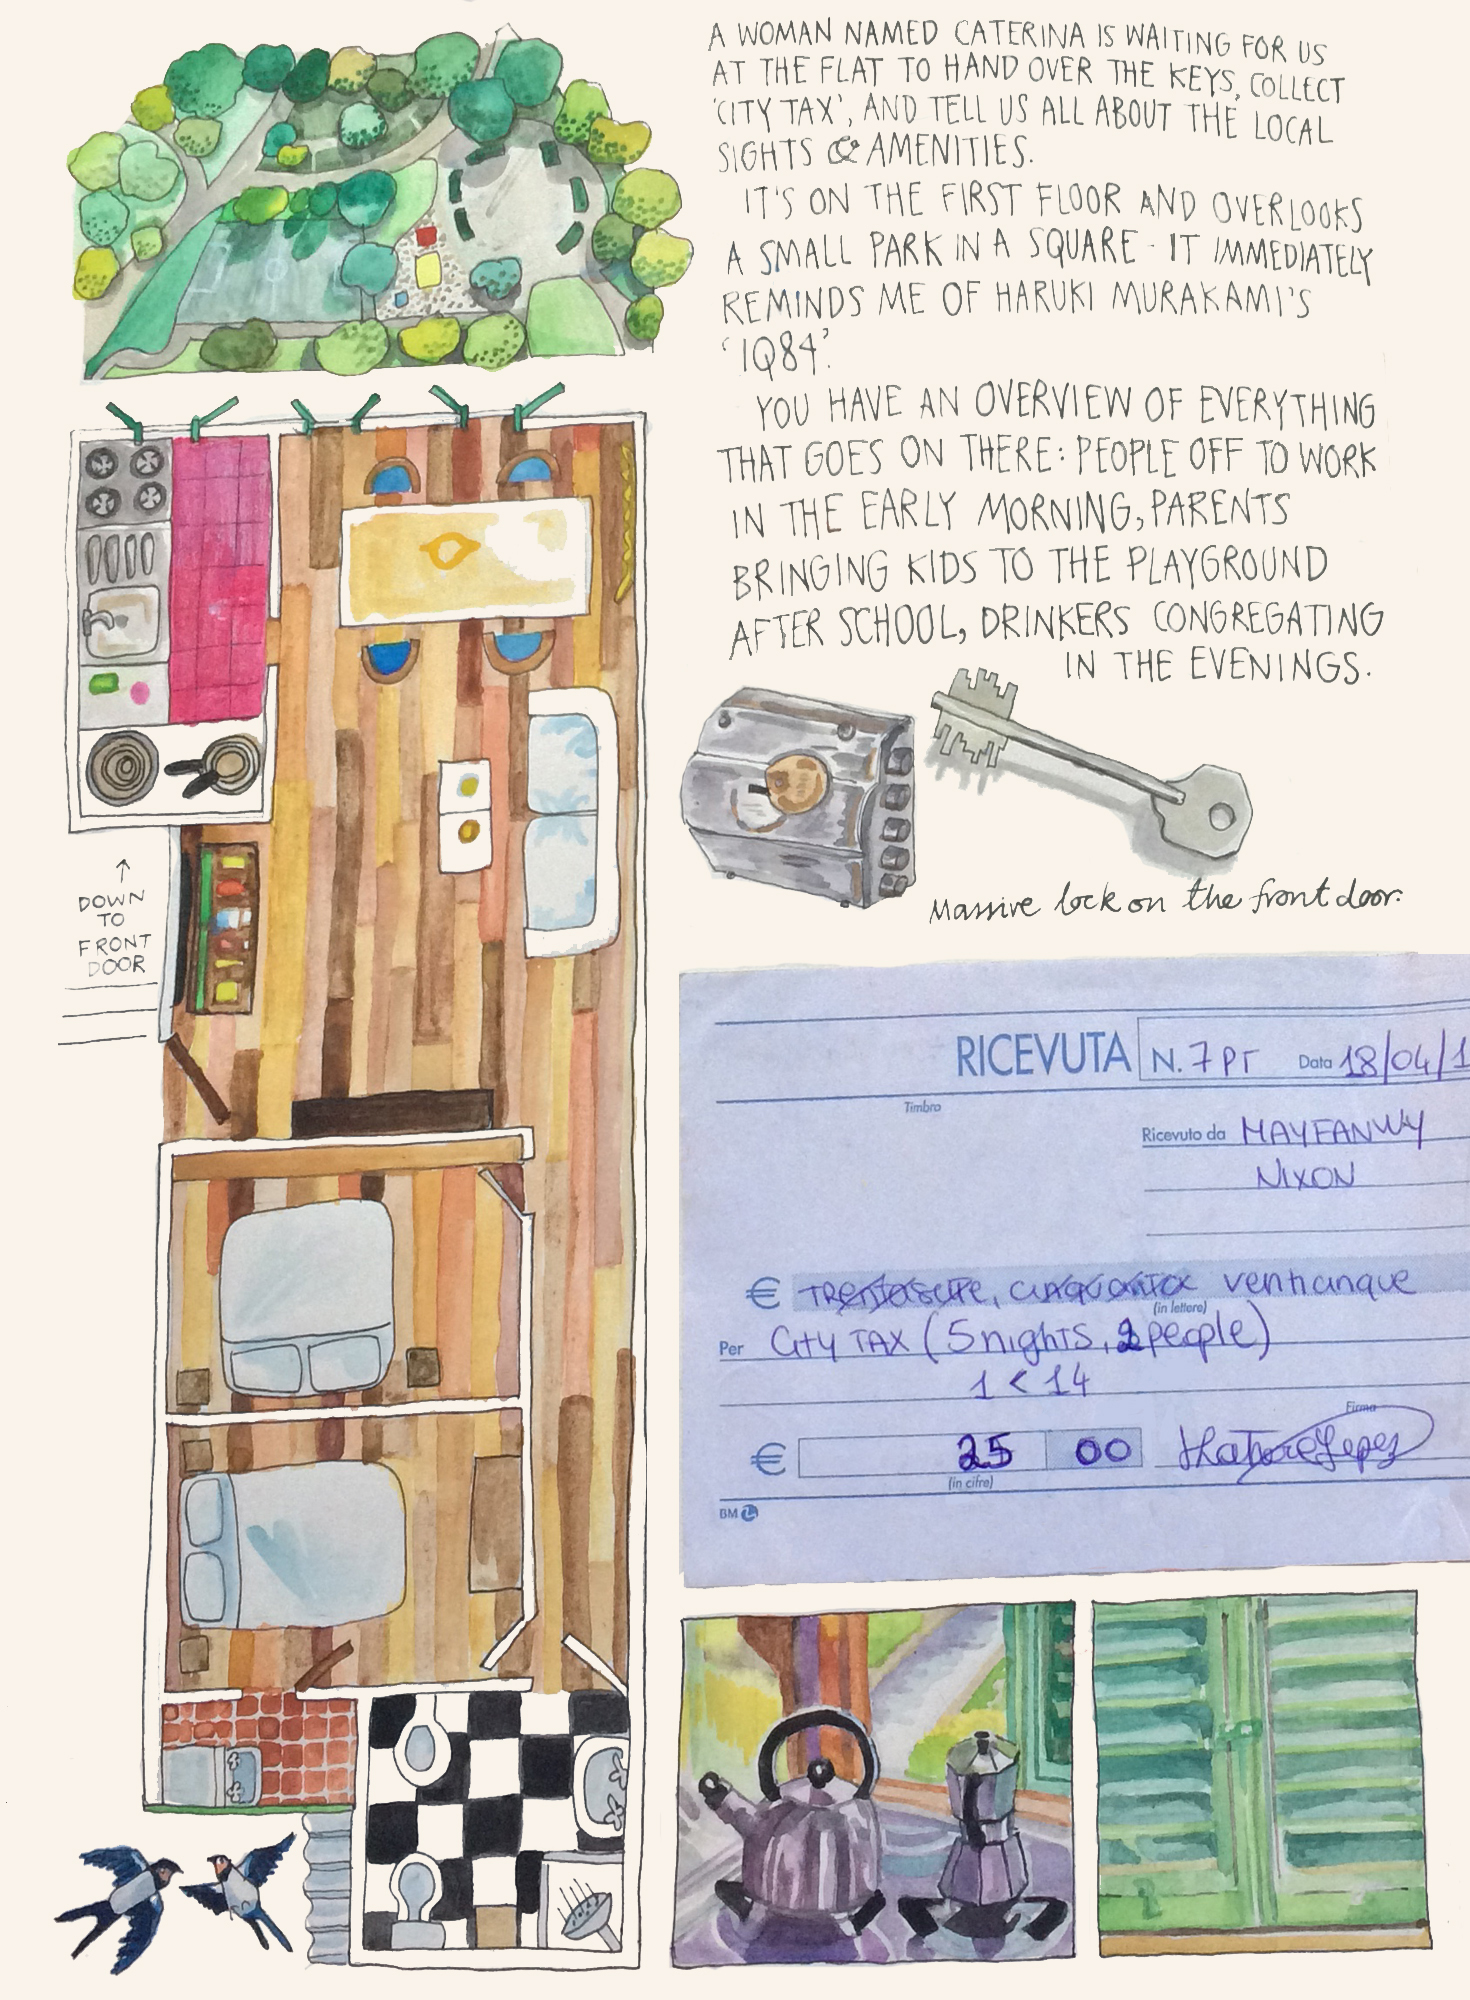 A WOMAN NAMED CATERINA IS WAITING FOR US
AT THE FLAT TO HAND OVER THE KEYS, COLLECT
'CITY TAX', AND TELL US ALL ABOUT THE LOCAL
SIGHTS & AMENITIES.
IT'S ON THE FIRST FLOOR AND OVERLOOKS
A SMALL PARK IN A SQUARE - IT IMMEDIATELY
REMINDS ME OF HARUKI MURAKAMI'S
'1Q84'.
YOU HAVE AN OVERVIEW OF EVERYTHING
THAT GOES ON THERE: PEOPLE OFF TO WORK
IN THE EARLY MORNING, PARENTS
BRINGING KIDS TO THE PLAYGROUND
AFTER SCHOOL, DRINKERS CONGREGATING
IN THE EVENINGS.
Massive lock on the front door.
DOWN
TO
FRONT
DOOR
RICEVUTA N. 7 PT Data 18/04/1
Timbro
Ricevuto da MAYFANWY
NIXON
€ venticinque
(in lettere)
Per City TAX (5 nights, 2 people)
1 < 14
Firma
€ 25 00
(in cifre)
BM